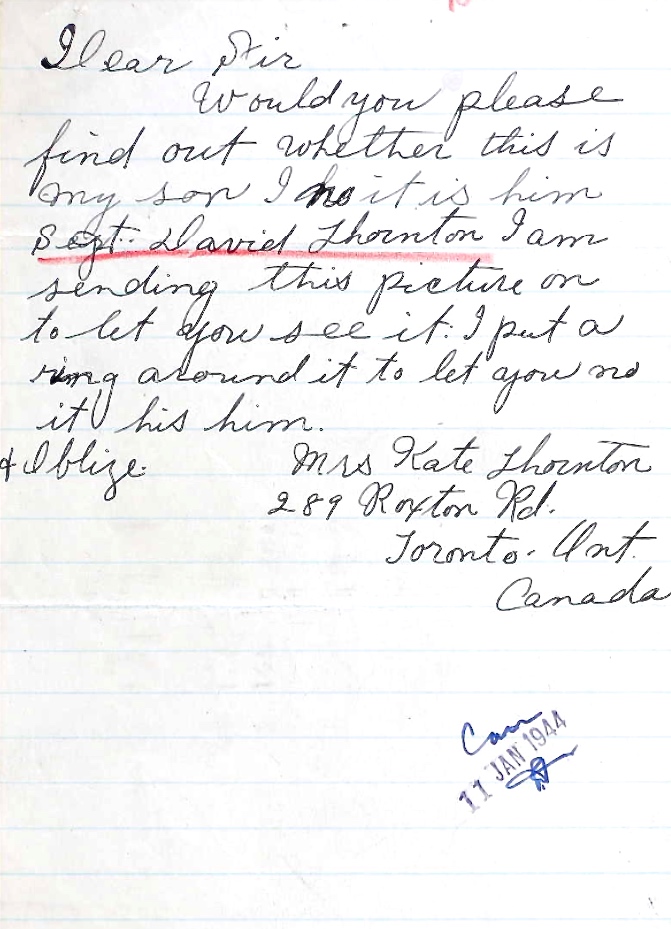 Dear Sir
Would you please
find out whether this is
my son I no it is him
Segt. David Thornton I am
sending this picture on
to let you see it. I put a
ring around it to let you no
it his him.
& Oblige. Mrs Kate Thornton
289 Roxton Rd.
Toronto. Ont.
Canada
Can
11 JAN 1944